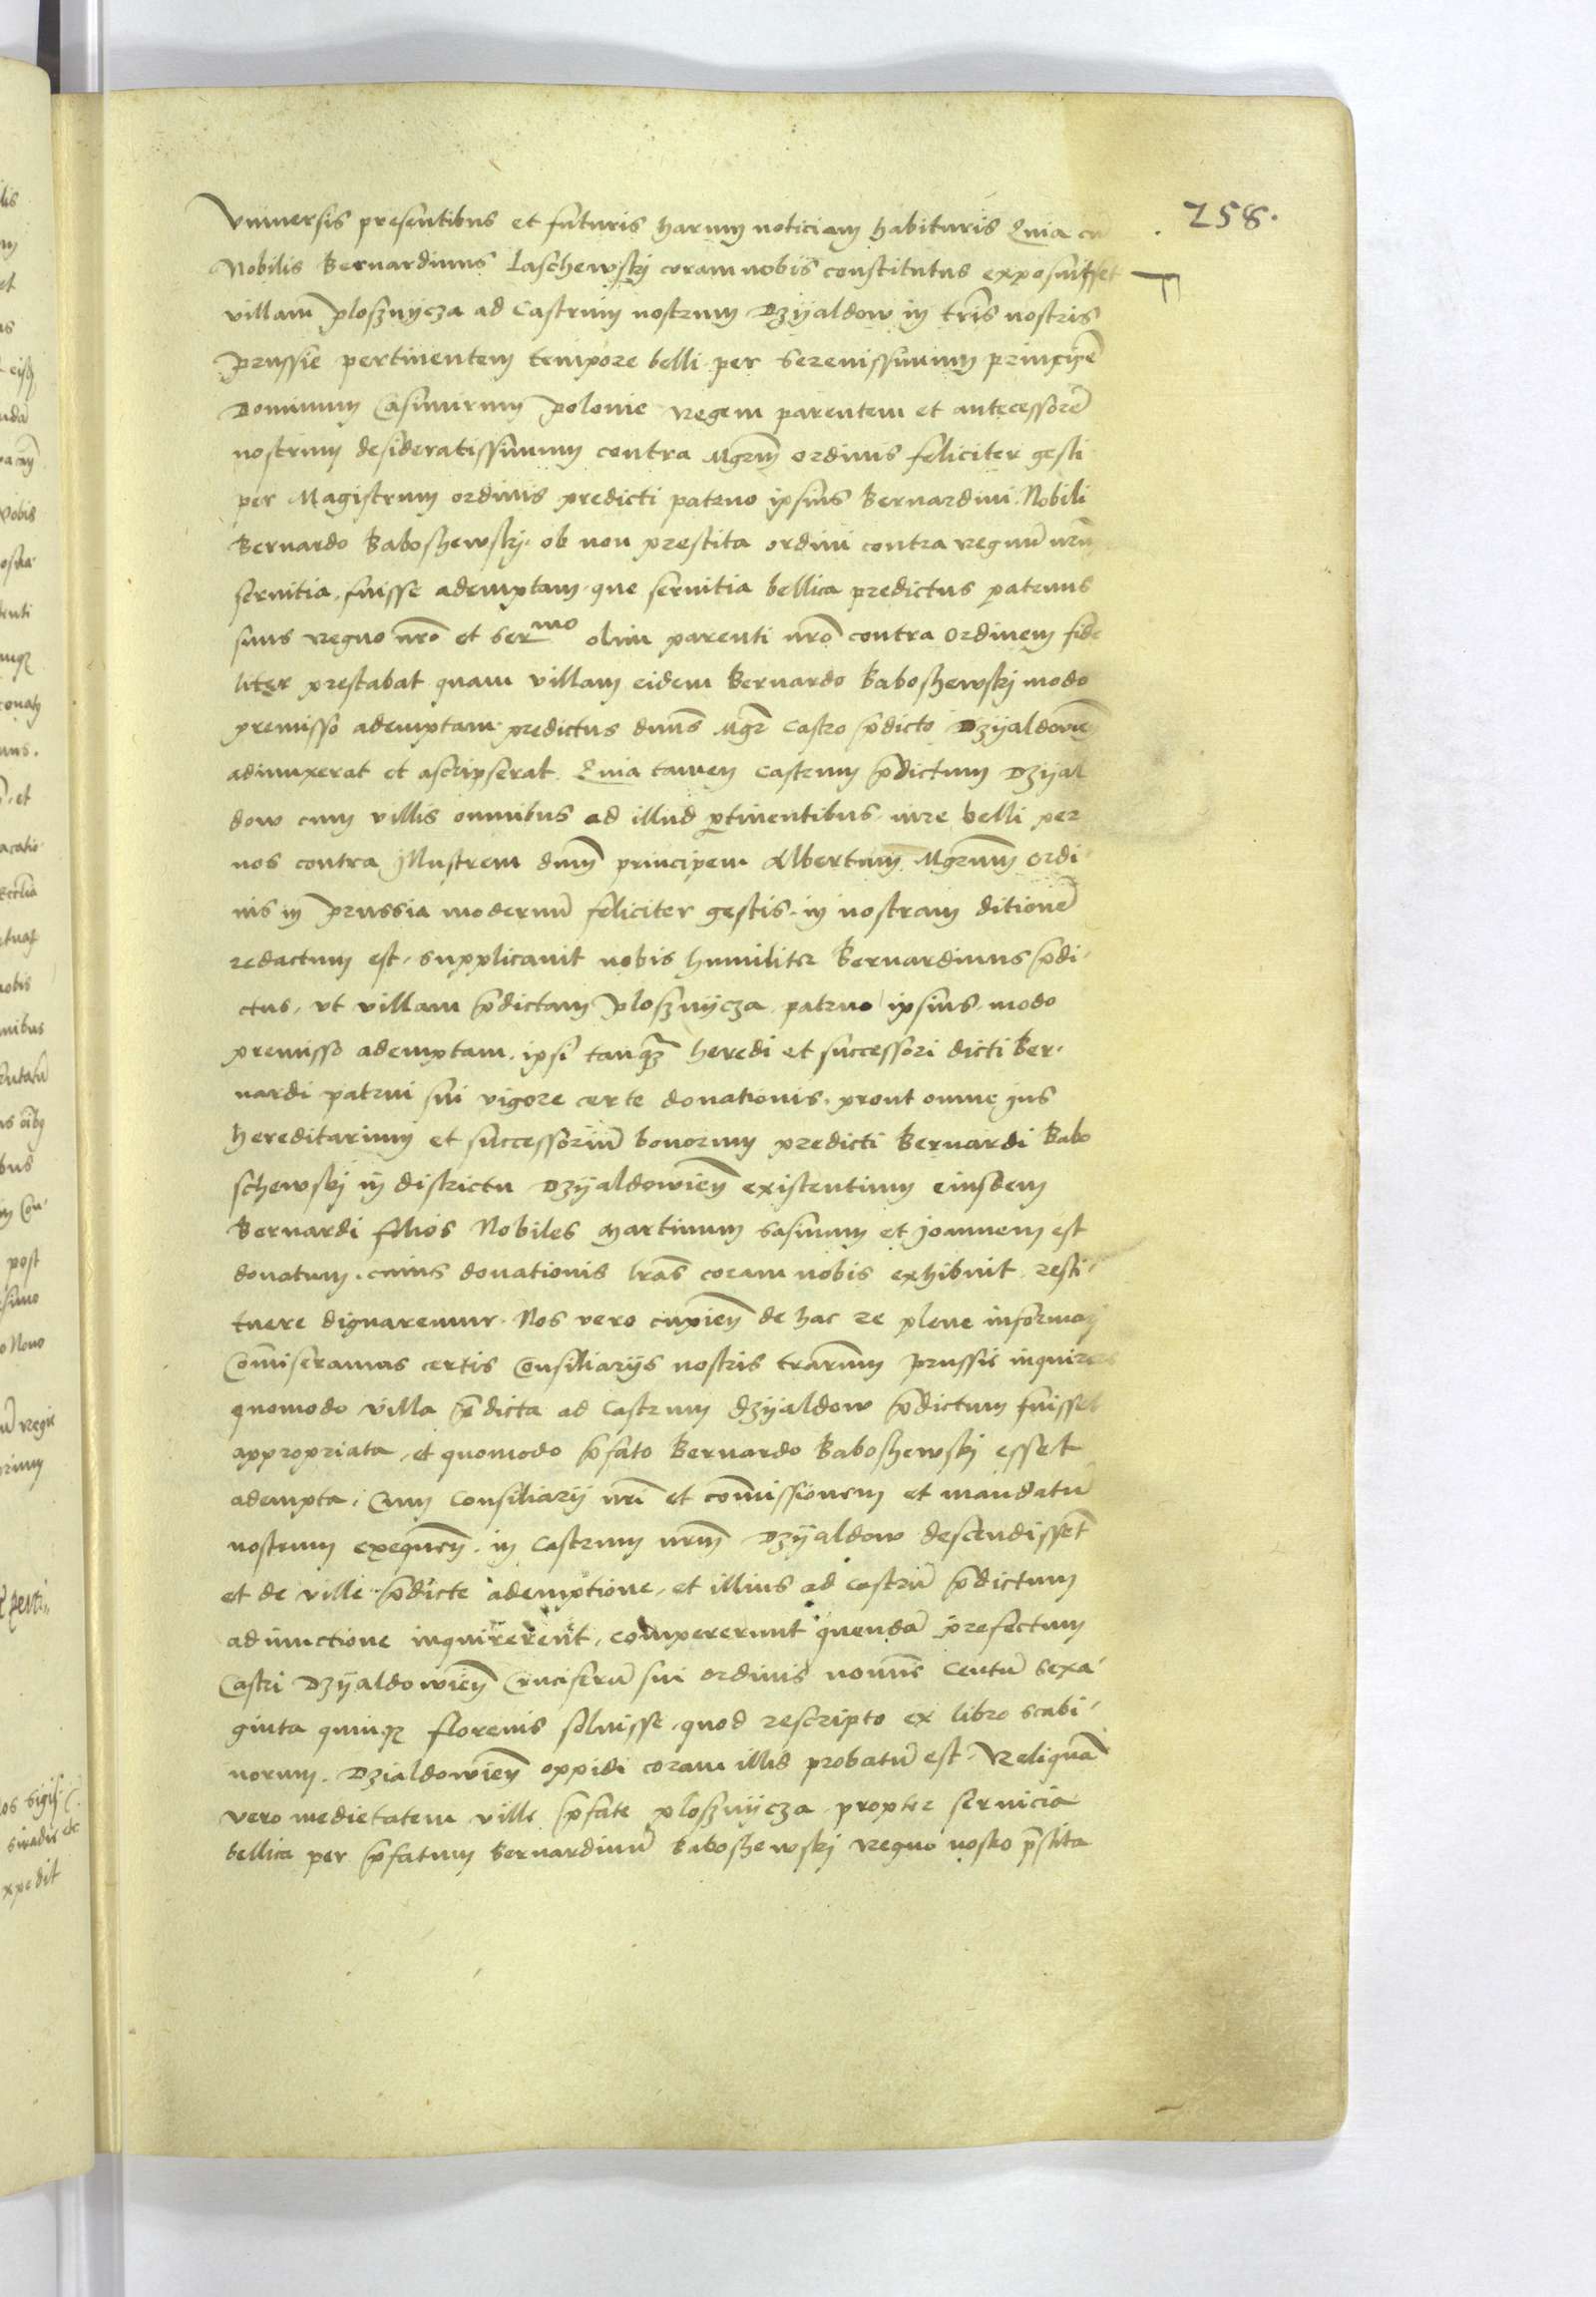 258.
Vniuersis presentibus et futuris harum noticiam habituris Quia cū
Nobilis Bernardinus Laschewskj coram nobis constitutus exposuisset
villam ploschnycza ad Castrum nostrum Dzyaldow in tr̄is nostris
Prussie pertinentem tempore belli per Serenissimum principē
Dominum Casimirum Polonie Regem parentem et antecessorē
nostrum desideratissimum contra Mgrm̄ ordinis feliciter gesti
per Magistrum ordinis predicti patruo ipsius Bernardini Nobili
Bernardo Baboschewskj ob non prestita ordini contra regnū nrm̄
seruitia fuisse ademptam que seruitia bellica predictus patruus
suus regno nrō et Sermo olim parenti nrō contra Ordinem fide
liter prestabat quam villam eidem Bernardo Baboschewskj modo
premisso ademptam predictus dnūs Mgr̄ castro p̄dicto Dzyaldovieñ
adiunxerat et ascripserat Quia tamen castrum p̄dictum Dzyal
dow cum villis omnibus ad illud ptinentibus iure belli per
nos contra Illustrem dnm̄ principem Albertum Mgrum̄ ordi
nis in Prussia modernū feliciter gestis in nostram ditionē
redactum est, supplicauit nobis humiliter Bernardinus p̄di
ctus, vt villam p̄dictam Plosznycza patruo ipsius modo
premisso ademptam ipsi tanqz̄ heredi et successori dicti Ber
nardi patrui sui vigore certe donationis prout omne ius
hereditarium et successoriū bonorum predicti Bernardi Babo
schewskj in districtu Dzyaldowieñ existentium eiusdem
Bernardi filios Nobiles Martinum Sasinum et Joannem est
donatum cuius donationis lrās coram nobis exhibuit resti
tuere dignaremur. Nos vero cupieñ de hac re plene informarj
Com̄iseramus certis Consiliarijs nostris trārum Prussie inquirere
quomodo villa p̄dicta ad castrum Dzyaldow p̄dictum fuisset
appropriata, et quomodo p̄fato Bernardo Baboschewskj esset
adempta, Cum Consiliarij nrī et com̄issionem et mandatū
nostrum exequeñ in castrum nrm̄ Dzyaldow descendissēt
et de ville p̄dicte ademptione, et illius ad castrū p̄dictum
adiunctione inquirerent, compererunt quendā prefectum
Castri Dzyaldowieñ Cruciferū sui ordinis nomīe Centū sexa
ginta quinqz florenis soluisse, quod rescripto ex libro scabi
norum Dzialdowieñ oppidi coram illis probatū est, Reliquā
vero medietatem ville p̄fate plosznycza propter seruicia
bellica per p̄fatum Bernardinū Baboschewskj Regno nostro p̄stita